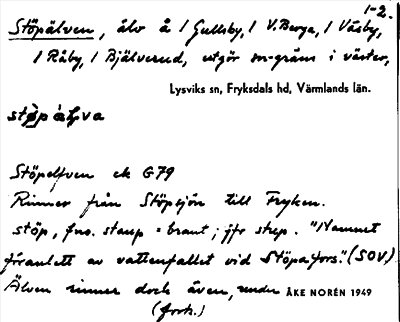 1-2.
Stöpälven, älv å 1 Gullsby, 1 V. Berga, 1 Väsby,
1 Råby, 1 Bjälverud, utgör sn-gräns i väster,
Lysviks sn, Fryksdals hd, Värmlands län.
Stöpelfven ek G79
Rinner från Stöpsjön till Fryken.
stöp, fno. staup = brant; jfr step. "Namnet
föranlett av vattenfallet vid Stöpafors." (SOV)
Älven rinner dock även, under ÅKE NORÉN 1949
(forts.)